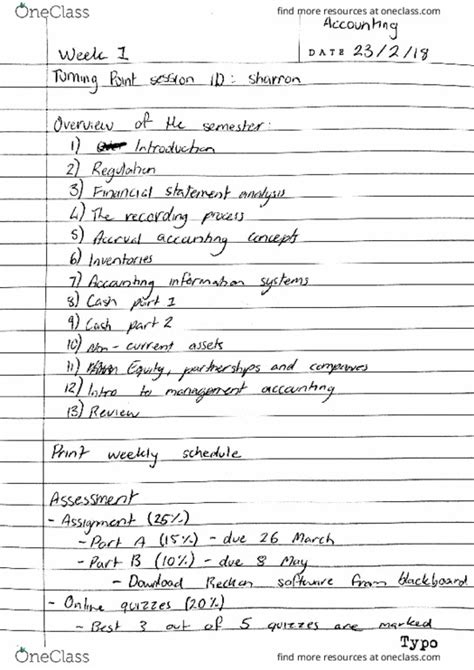 OneClass
find more resources at oneclass.com
find more resources at oneclass.com
Accounting
Week 1
DATE 23/2/18
Turning Point session ID: sharron
Overview of the semester:
1) Introduction
2) Regulation
3) Financial statement analysis
4) The recording process
5) Accrual accounting concepts
6) Inventories
7) Accounting information systems
8) Cash part 1
9) Cash part 2
10) Non-current assets
11) Equity, partnerships and companies
12) Intro to management accounting
13) Review
Print weekly schedule
Assessment
- Assignment (25%)
- Part A (15%) - due 26 March
- Part B (10%) - due 8 May
- Download Reckon software from blackboard
- Online quizzes (20%)
- Best 3 out of 5 quizzes are marked
Typo
OneClass
find more resources at oneclass.com
find more resources at oneclass.com